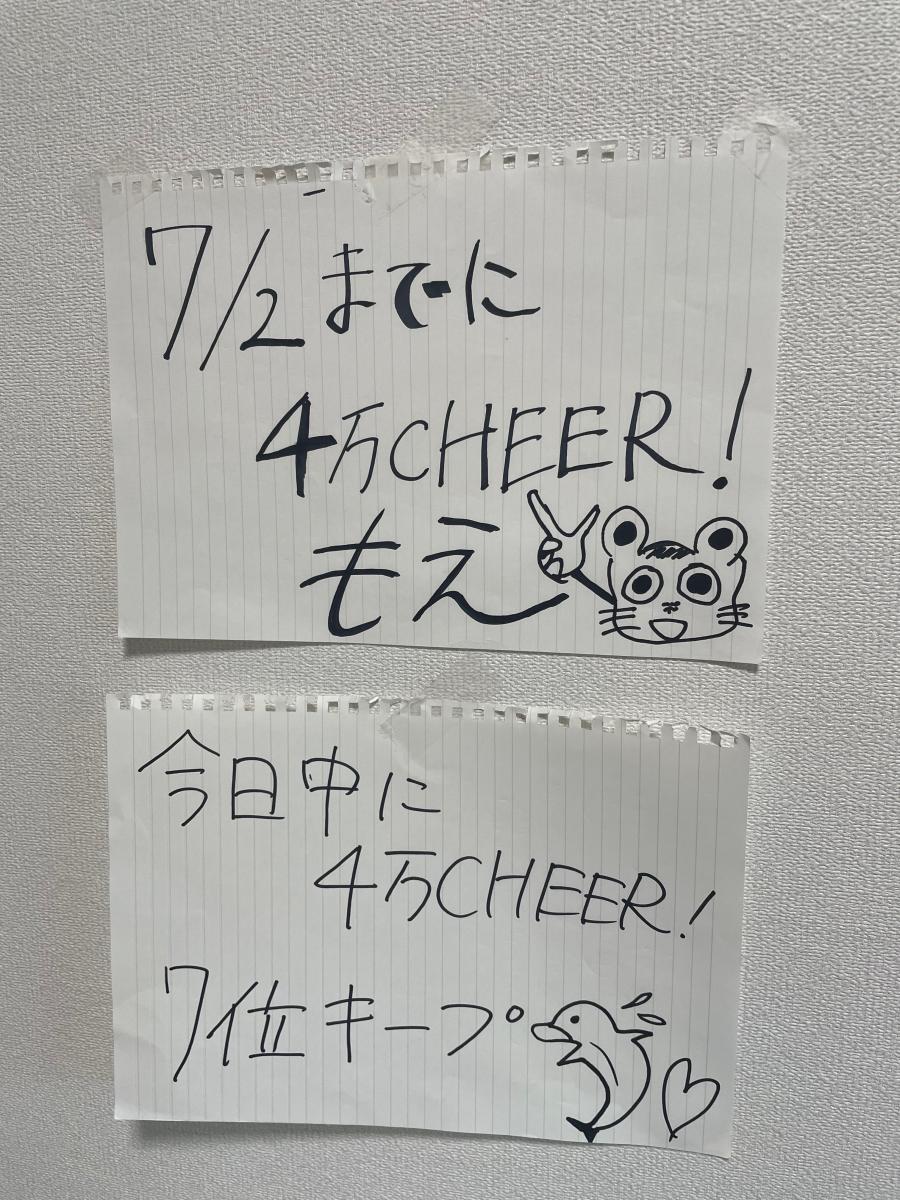 7/2 までに
4万CHEER!
もえ
今日中に
4万CHEER!
7位キープ